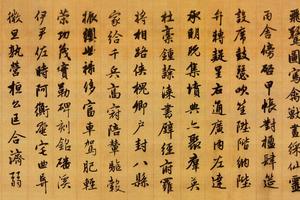 飛驚圖寫禽獸畫彩仙靈
丙舍傍啟甲帳對楹肆筵
設席鼓瑟吹笙陞階納陛
弁轉疑星右通廣內左達
承明既集墳典亦聚群英
杜稾鍾隸漆書壁經府羅
將相路俠槐卿戶封八縣
家給千兵高冠陪輦驅轂
振纓世祿侈富車駕肥輕
策功茂實勒碑刻銘磻溪
伊尹佐時阿衡奄宅曲阜
微旦孰營桓公匡合濟弱